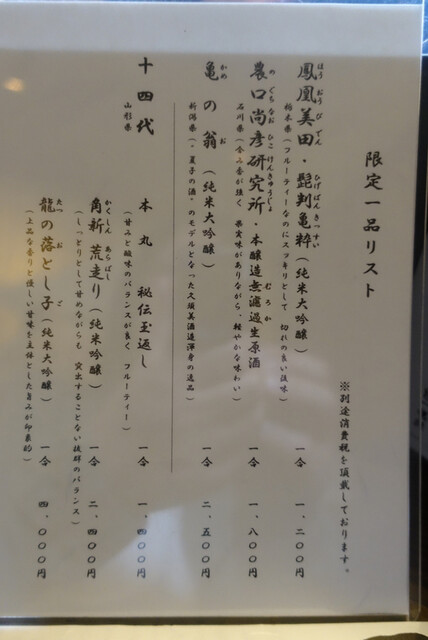 限定一品リスト
※別途消費税を頂戴しております。
鳳凰美田・髭判亀粋(純米大吟醸) 一合 一、二〇〇円
ほうおうびでん ひげばんきっすい
栃木県(フルーティーなのにスッキリとして 切れの良い後味)
農口尚彦研究所・本醸造無濾過生原酒 一合 一、八〇〇円
のぐちなおひこけんきゅうじょ むろか
石川県(含み香が強く 果実味がありながら、軽やかな味わい)
亀の翁(純米大吟醸) 一合 二、五〇〇円
かめ お
新潟県(・夏子の酒・のモデルとなった久須美酒造渾身の逸品)
十四代 本丸 秘伝玉返し 一合 一、四〇〇円
山形県 (甘みと酸味のバランスが良く フルーティー)
角新 荒走り(純米吟醸) 一合 二、四〇〇円
かくしん あらばし
(しっとりとして甘めながらも 突出することない抜群のバランス)
龍の落とし子(純米大吟醸) 一合 四、〇〇〇円
たつ お ご
(上品な香りと優しい甘味を主体とした旨みが印象的)